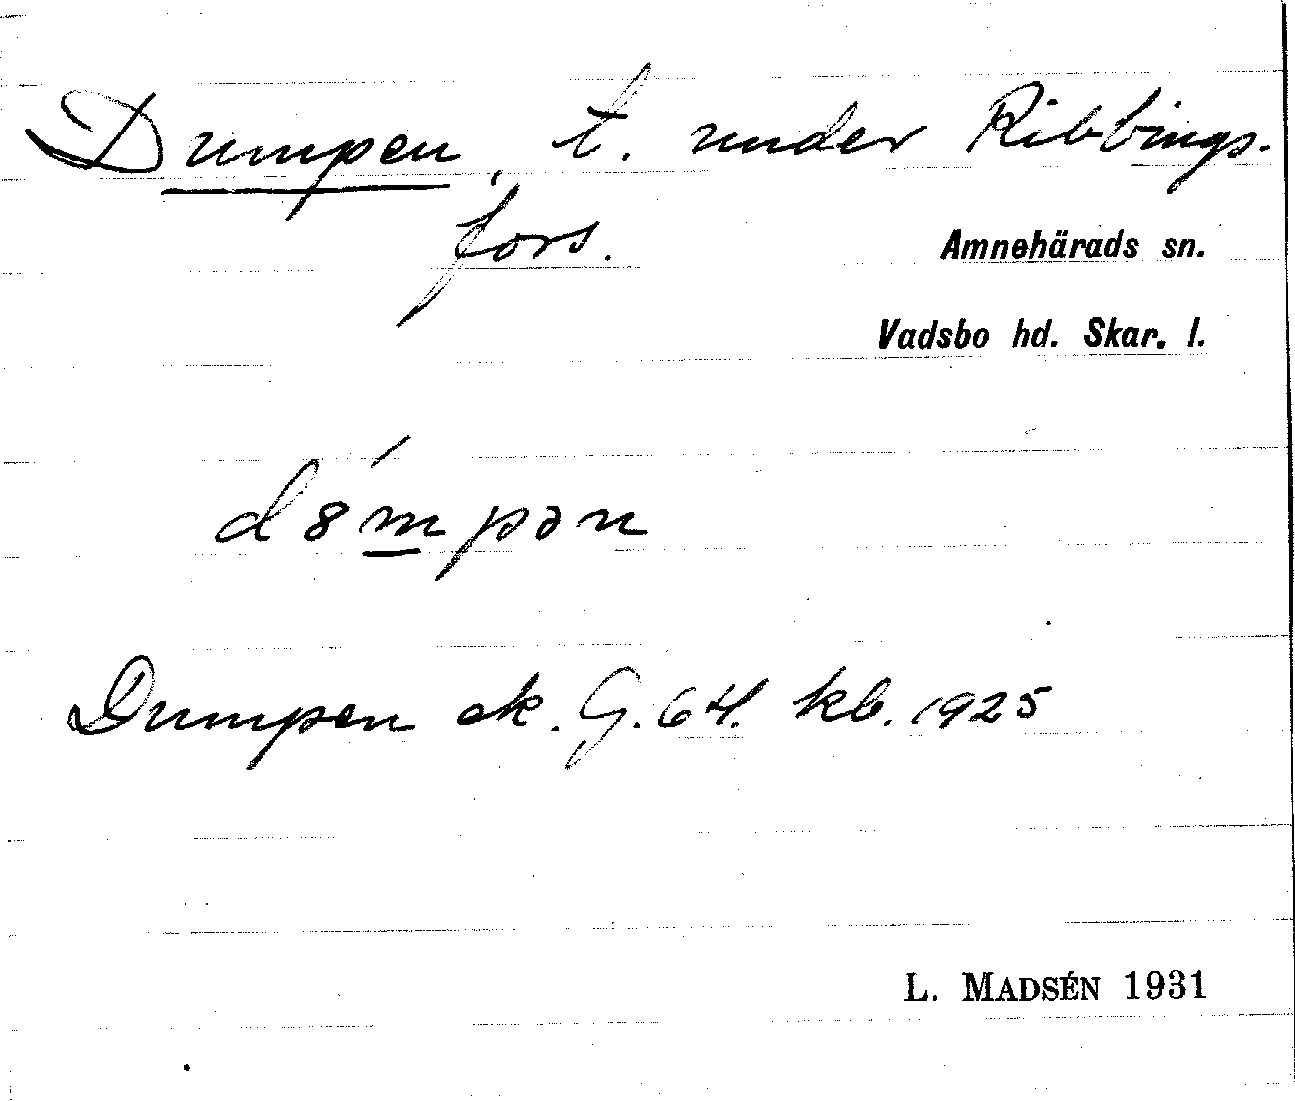 Dumpen, t. under Ribbings-
fors.
Amnehärads sn.
Vadsbo hd. Skar. l.
d8́mpən
Dumpen ek. G. 64. kb. 1925
L. MADSÉN 1931